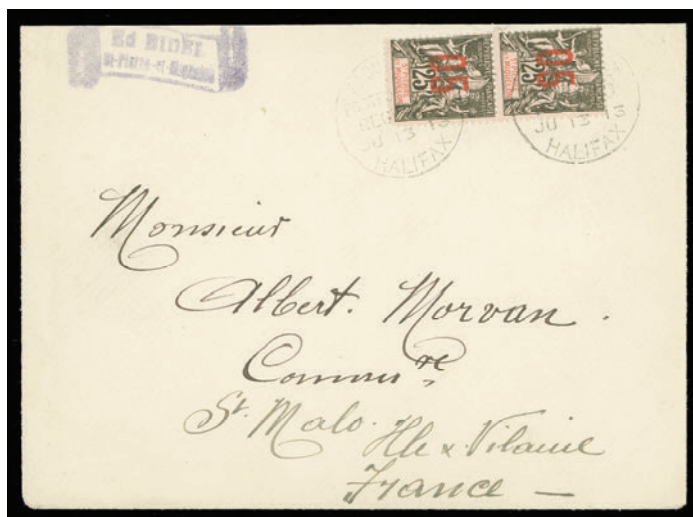 Ed BIDEL
St-Pierre-et-Miquelon
05 05
25 25
JU 13 13
HALIFAX
JU 13 13
HALIFAX
Monsieur
Albert. Morvan.
St. Malo. Ille & Vilaine
France —